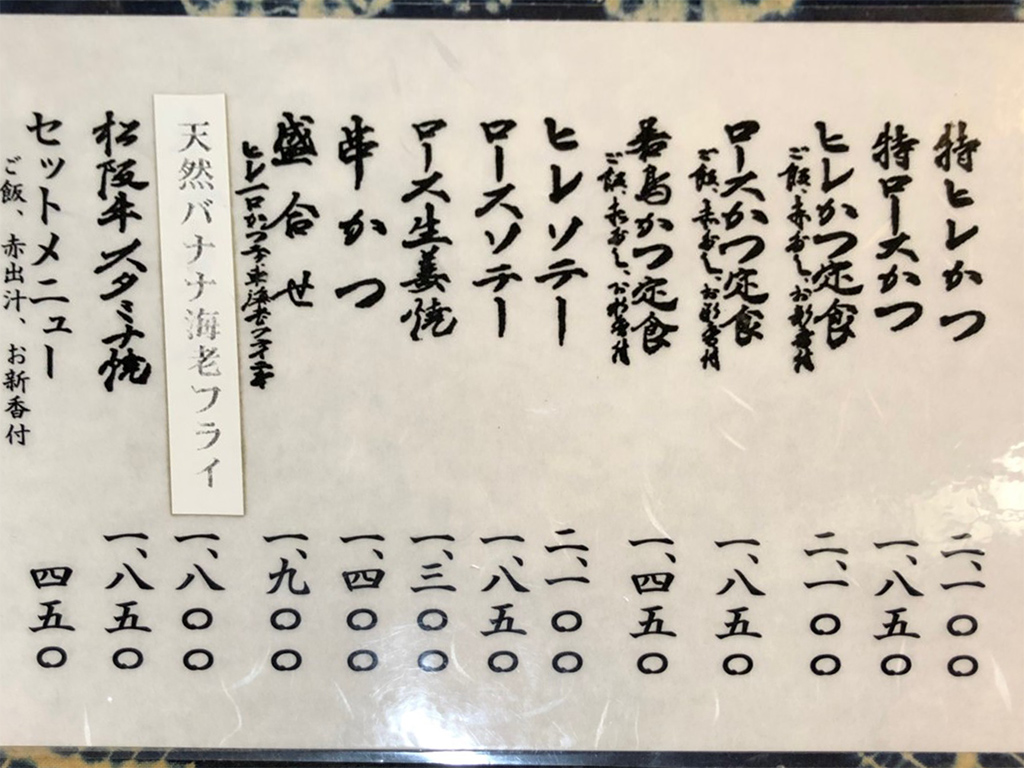 特ヒレかつ 二、一〇〇
特ロースかつ 一、八五〇
ヒレかつ定食 二、一〇〇
ご飯、赤だし、お新香付
ロースかつ定食 一、八五〇
ご飯、赤だし、お新香付
若鳥かつ定食 一、四五〇
ご飯、赤だし、お新香付
ヒレソテー 二、一〇〇
ロースソテー 一、八五〇
ロース生姜焼 一、三〇〇
串かつ 一、四〇〇
盛合せ 一、九〇〇
ヒレ一口かつ二ヶ、車海老フライ二本
天然バナナ海老フライ 一、八〇〇
松阪牛スタミナ焼 一、八五〇
セットメニュー 四五〇
ご飯、赤出汁、お新香付